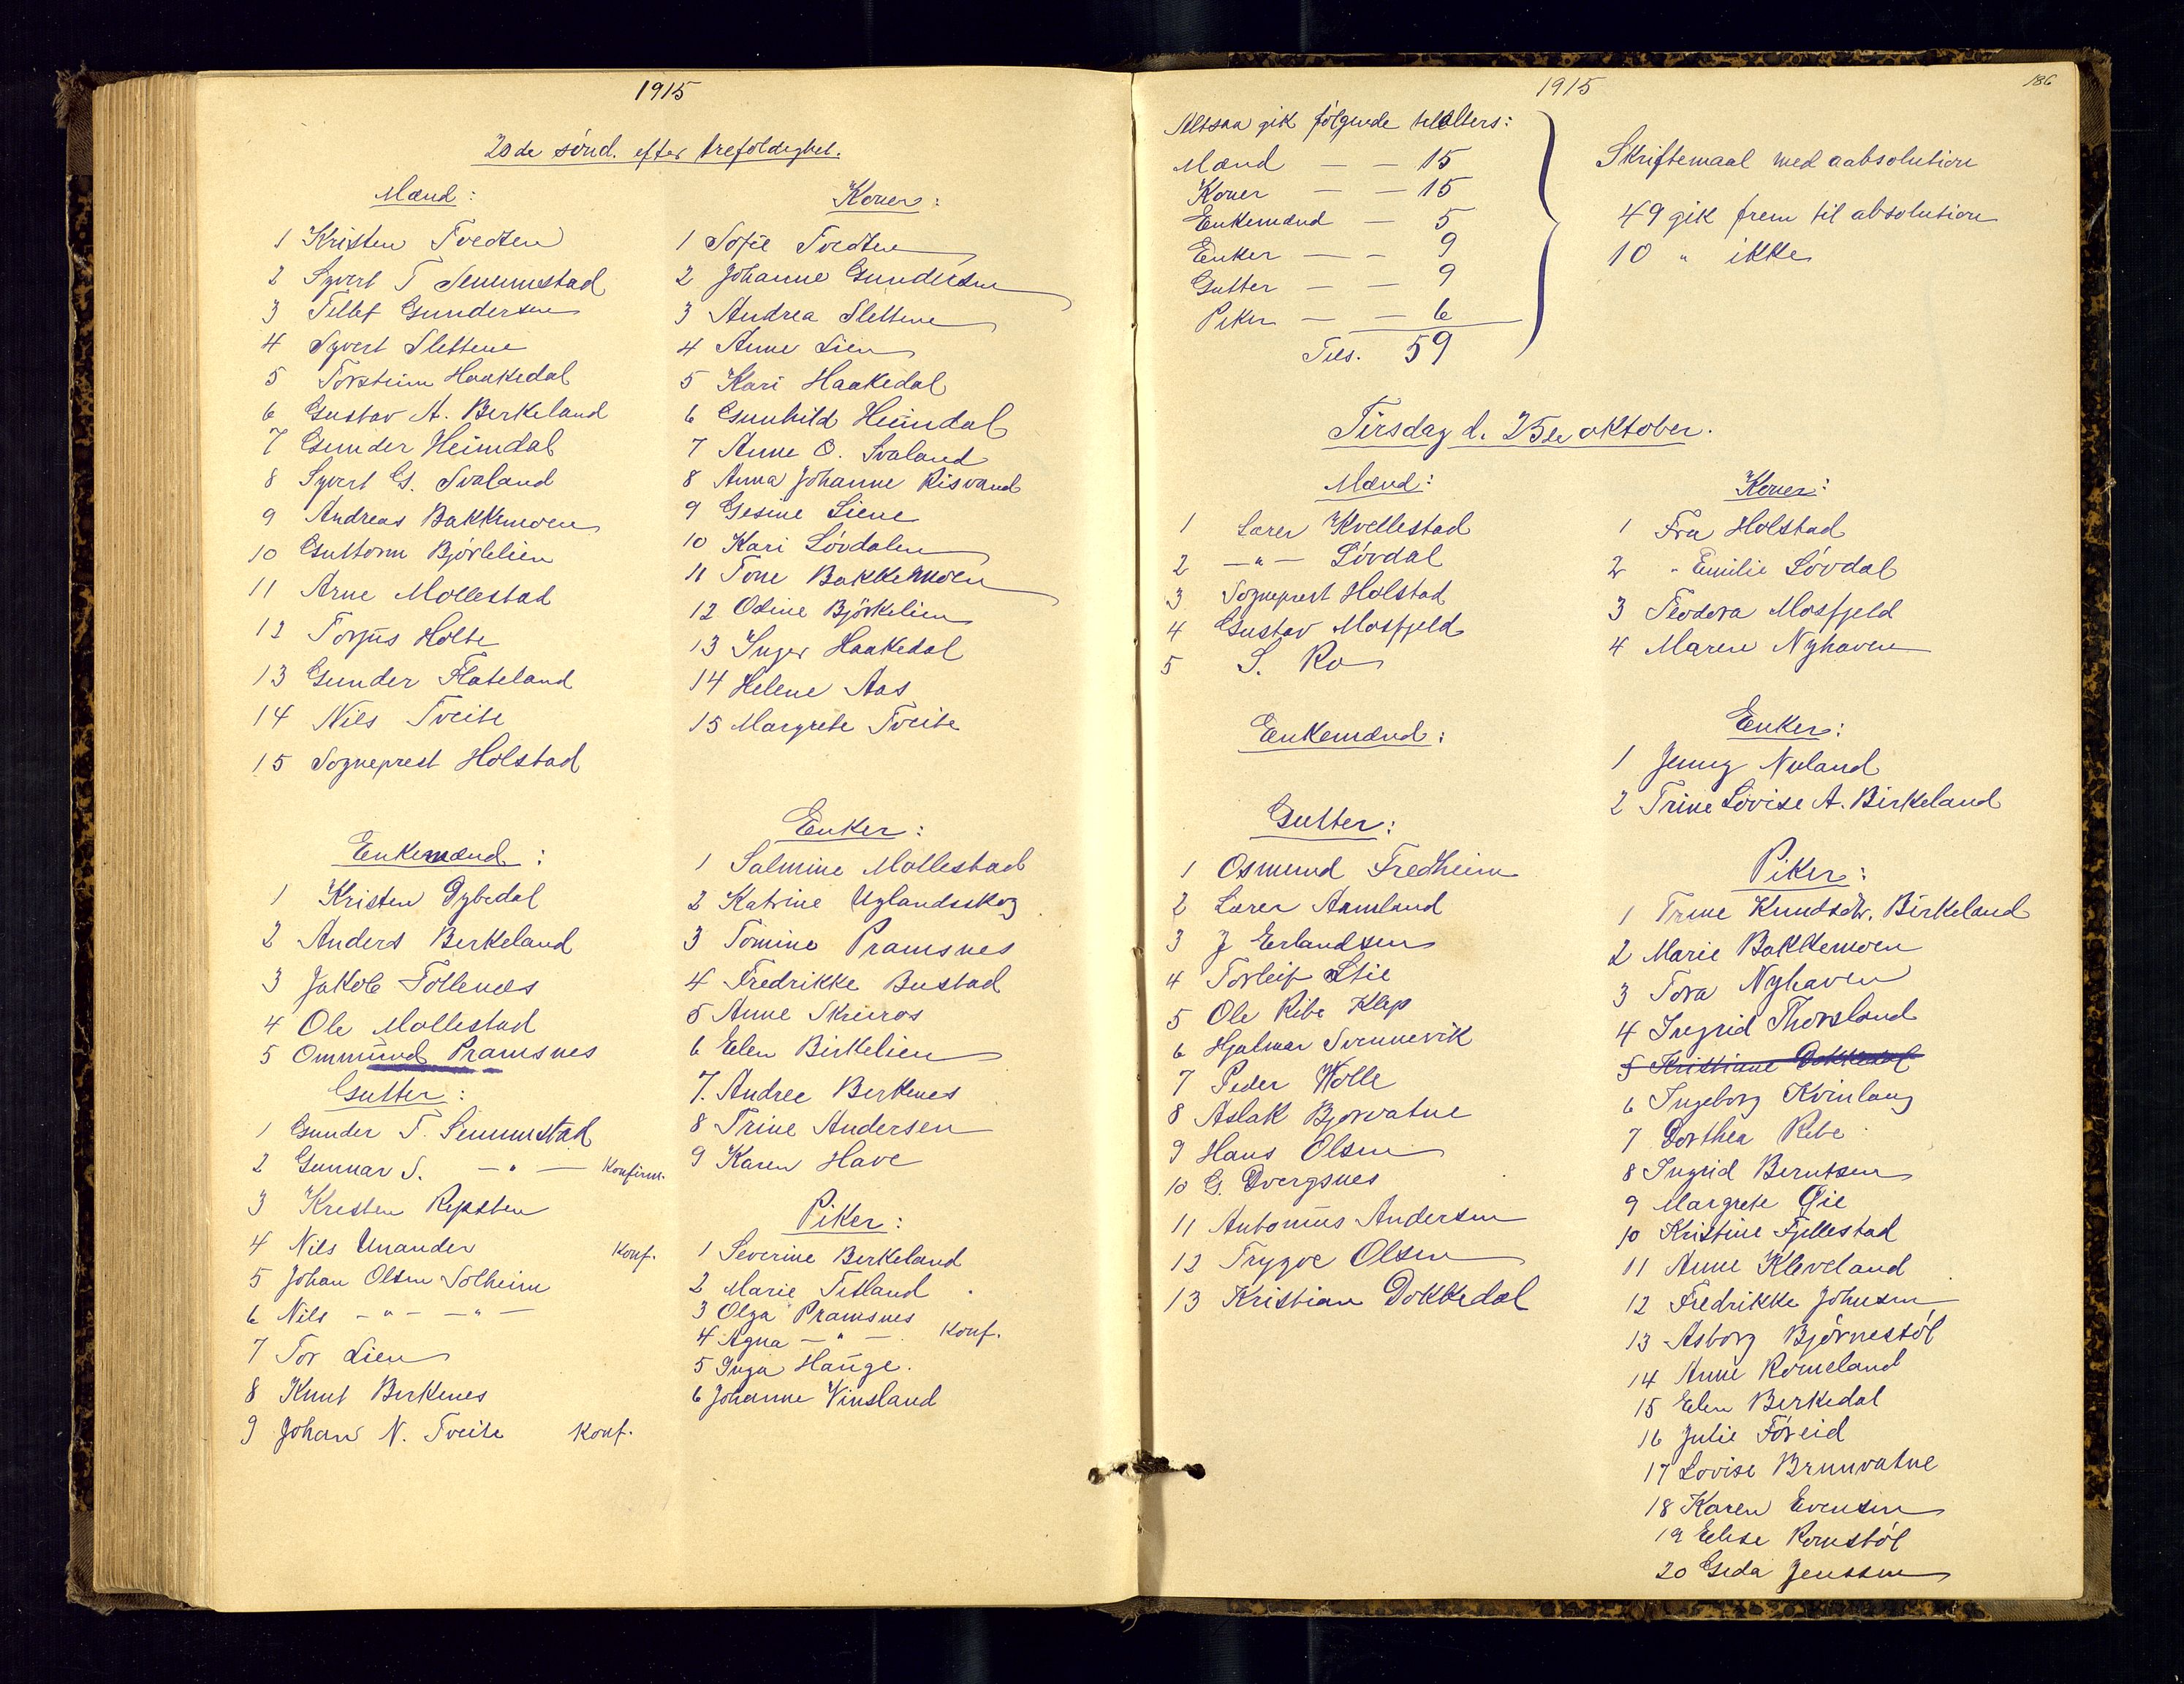 1915
20de sönd. efter trefoldighet.
Mænd:
1 Kristen Tvedten
2 Syvert T Senumstad
3 Tellef Gundersen
4 Syvert Slettene
5 Torstein Haakedal
6 Gustav A. Berkeland
7 Gunder Heimdal
8 Syvert G. Svaland
9 Andreas Bakkemoen
10 Guttorm Björkelien
11 Arne Mollestad
12 Torjus Holte
13 Gunder Flateland
14 Nils Tveite
15 Sogneprest Holstad
Enkemænd:
1 Kristen Dybedal
2 Anders Berkeland
3 Jakob Follenæs
4 Ole Mollestad
5 Ommund Pramsnes
Gutter:
1 Gunder T. Senumstad
2 Gunnar S. — " — Konfirm.
3 Kristen Repsten
4 Nils Unander Konf.
5 Johan Olsen Solheim
6 Nils - " - — " —
7 Tor Lien
8 Knut Berkenes
9 Johan N. Tveite Konf.
Koner:
1 Sofie Tvedten
2 Johanne Gundersen
3 Andrea Slettene
4 Anne Lien
5 Kari Haakedal
6 Gunhild Heimdal
7 Anne O. Svaland
8 Anna Johanne Risvand
9 Gesine Liene
10 Kari Lövdalen
11 Tone Bakkemoen
12 Odine Björkelien
13 Inger Haakedal
14 Helene Aas
15 Margrete Tveite
Enker:
1 Salmine Mollestad
2 Katrine Uglandsskog
3 Tomine Pramsnes
4 Fredrikke Bustad
5 Anne Skreiros
6 Elen Birkelien
7. Andree Berkenes
8 Trine Andersen
9 Karen Have
Piker:
1 Severine Berkeland
2 Marie Titland
3 Olga Pramsnes
4 Agna — " — Konf.
5 Inga Hauge.
6 Johanne Vinsland
1915
186
Altsaa gik fölgende til alters:
Mænd — — 15
Koner — — 15
Enkemænd — 5
Enker — — 9
Gutter — — 9
Piker — — 6
Tils. 59
Skriftemaal med aabsolution
49 gik frem til absolution
10 " ikke
Tirsdag d. 25de oktober.
Mænd:
1 Lærer Kvellestad
2 — " — Lövdal
3 Sogneprest Holstad
4 Gustav Mosfjeld
5 S. Ro
Enkemænd:
Gutter:
1 Osmund Fredheim
2 Lærer Aamland
3 J Erlandsen
4 Torleif Stie
5 Ole Ribe Klep
6 Hjalmar Svennevik
7 Peder Wolle
8 Aslak Bjorvatne
9 Hans Olsen
10 G. Dvergsnes
11 Antonius Andersen
12 Trygve Olsen
13 Kristian Dokkedal
Koner:
1 Fru Holstad
2 " Emilie Lövdal
3 Teodora Mosfjeld
4 Maren Nyhaven
Enker:
1 Jenny Nuland
2 Trine Lovise A. Birkeland
Piker:
1 Trine Knudsdtr. Birkeland
2 Marie Bakkemoen
3 Tora Nyhaven
4 Ingrid Thorsland
5 Kristiane Dokkedal
6 Ingeborg Kvinlaug
7 Dorthea Ribe
8 Ingrid Berntsen
9 Margrete Øie
10 Kristine Fjellestad
11 Anne Kleveland
12 Fredrikke Johnsen
13 Asborg Björnestöl
14 Anne Romeland
15 Elen Berkedal
16 Julie Föreid
17 Lovise Brunvatne
18 Karen Evensen
19 Elise Romstöl
20 Gida Jenssen